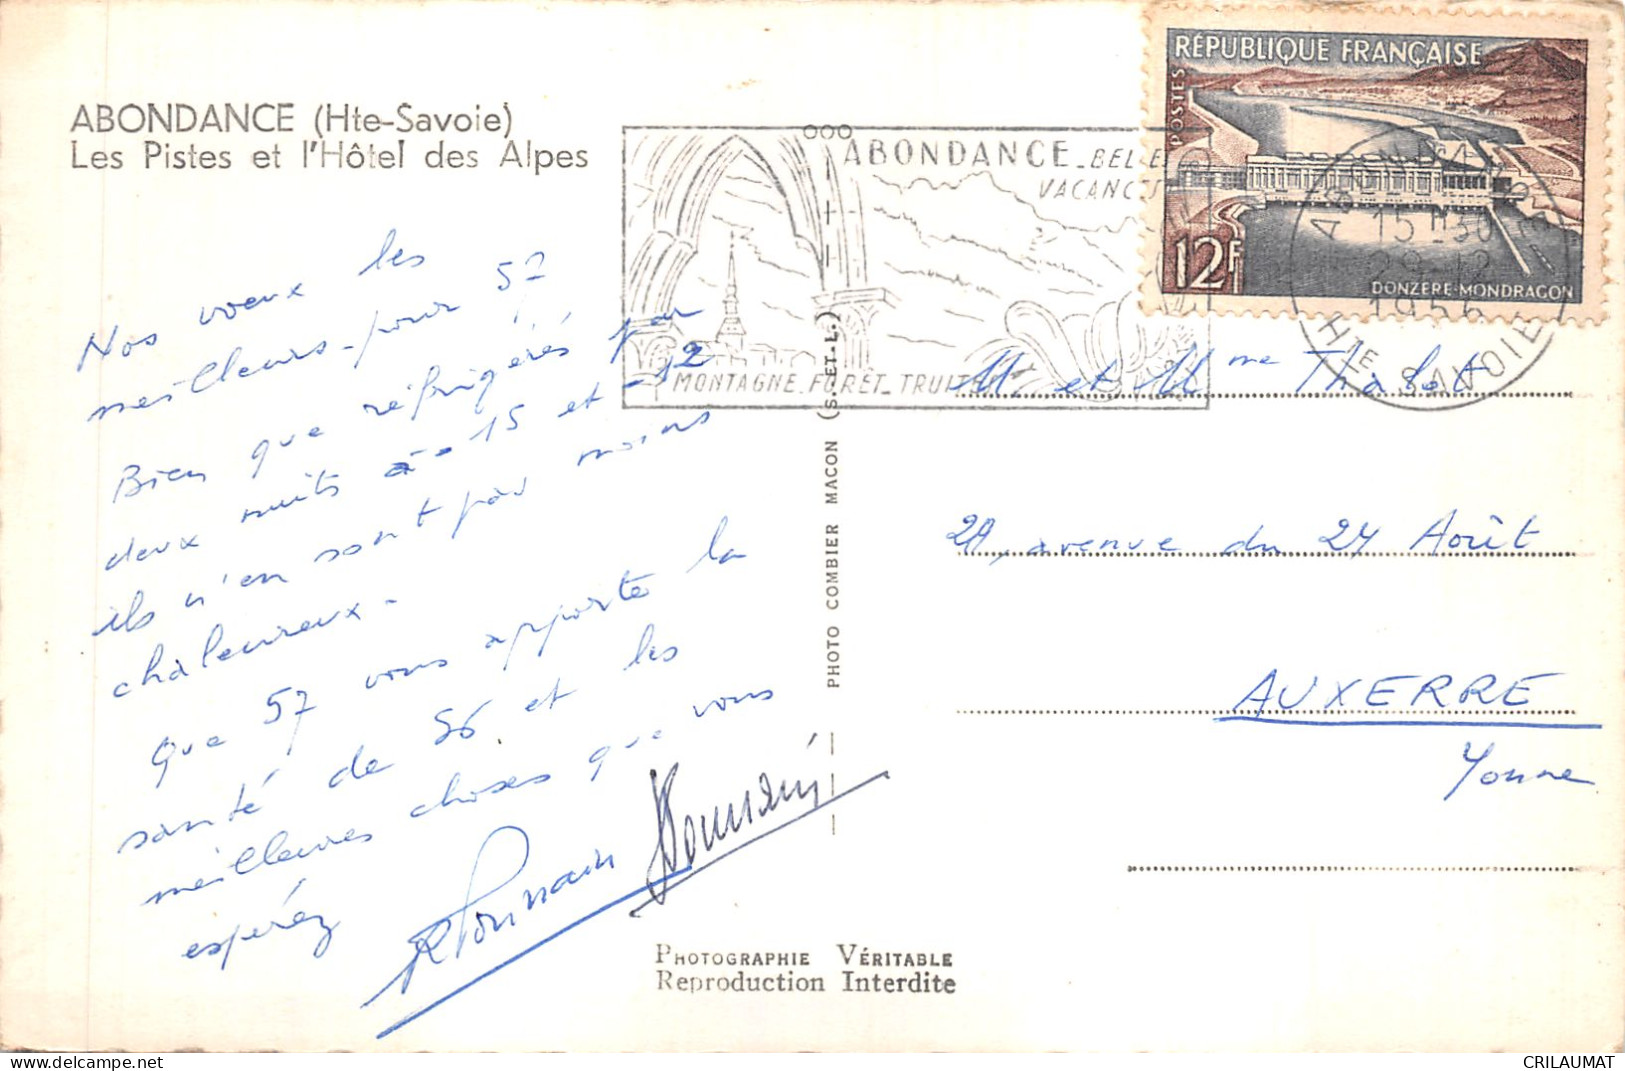 ABONDANCE (Hte-Savoie)
Les Pistes et l'Hôtel des Alpes
Nos voeux les
meilleurs - pour 57
Bien que réfrigérés par
deux nuits à -15 et -12
ils n'en sont pas moins
chaleureux -
Que 57 vous apporte la
santé de 56 et les
meilleures choses que vous
espérez
ABONDANCE - BELLE
VACANCES
MONTAGNE - FORÊT - TRUITE
RÉPUBLIQUE FRANÇAISE
POSTES
12F
DONZÈRE-MONDRAGON
ABONDANCE
15H30
29-12
1956
HTE SAVOIE
PHOTO COMBIER MACON (S.-ET-L.)
M et Mme Thalet
29, avenue du 24 Août
AUXERRE
Yonne
PHOTOGRAPHIE VÉRITABLE
Reproduction Interdite
delcampe.net
CRILAUMAT